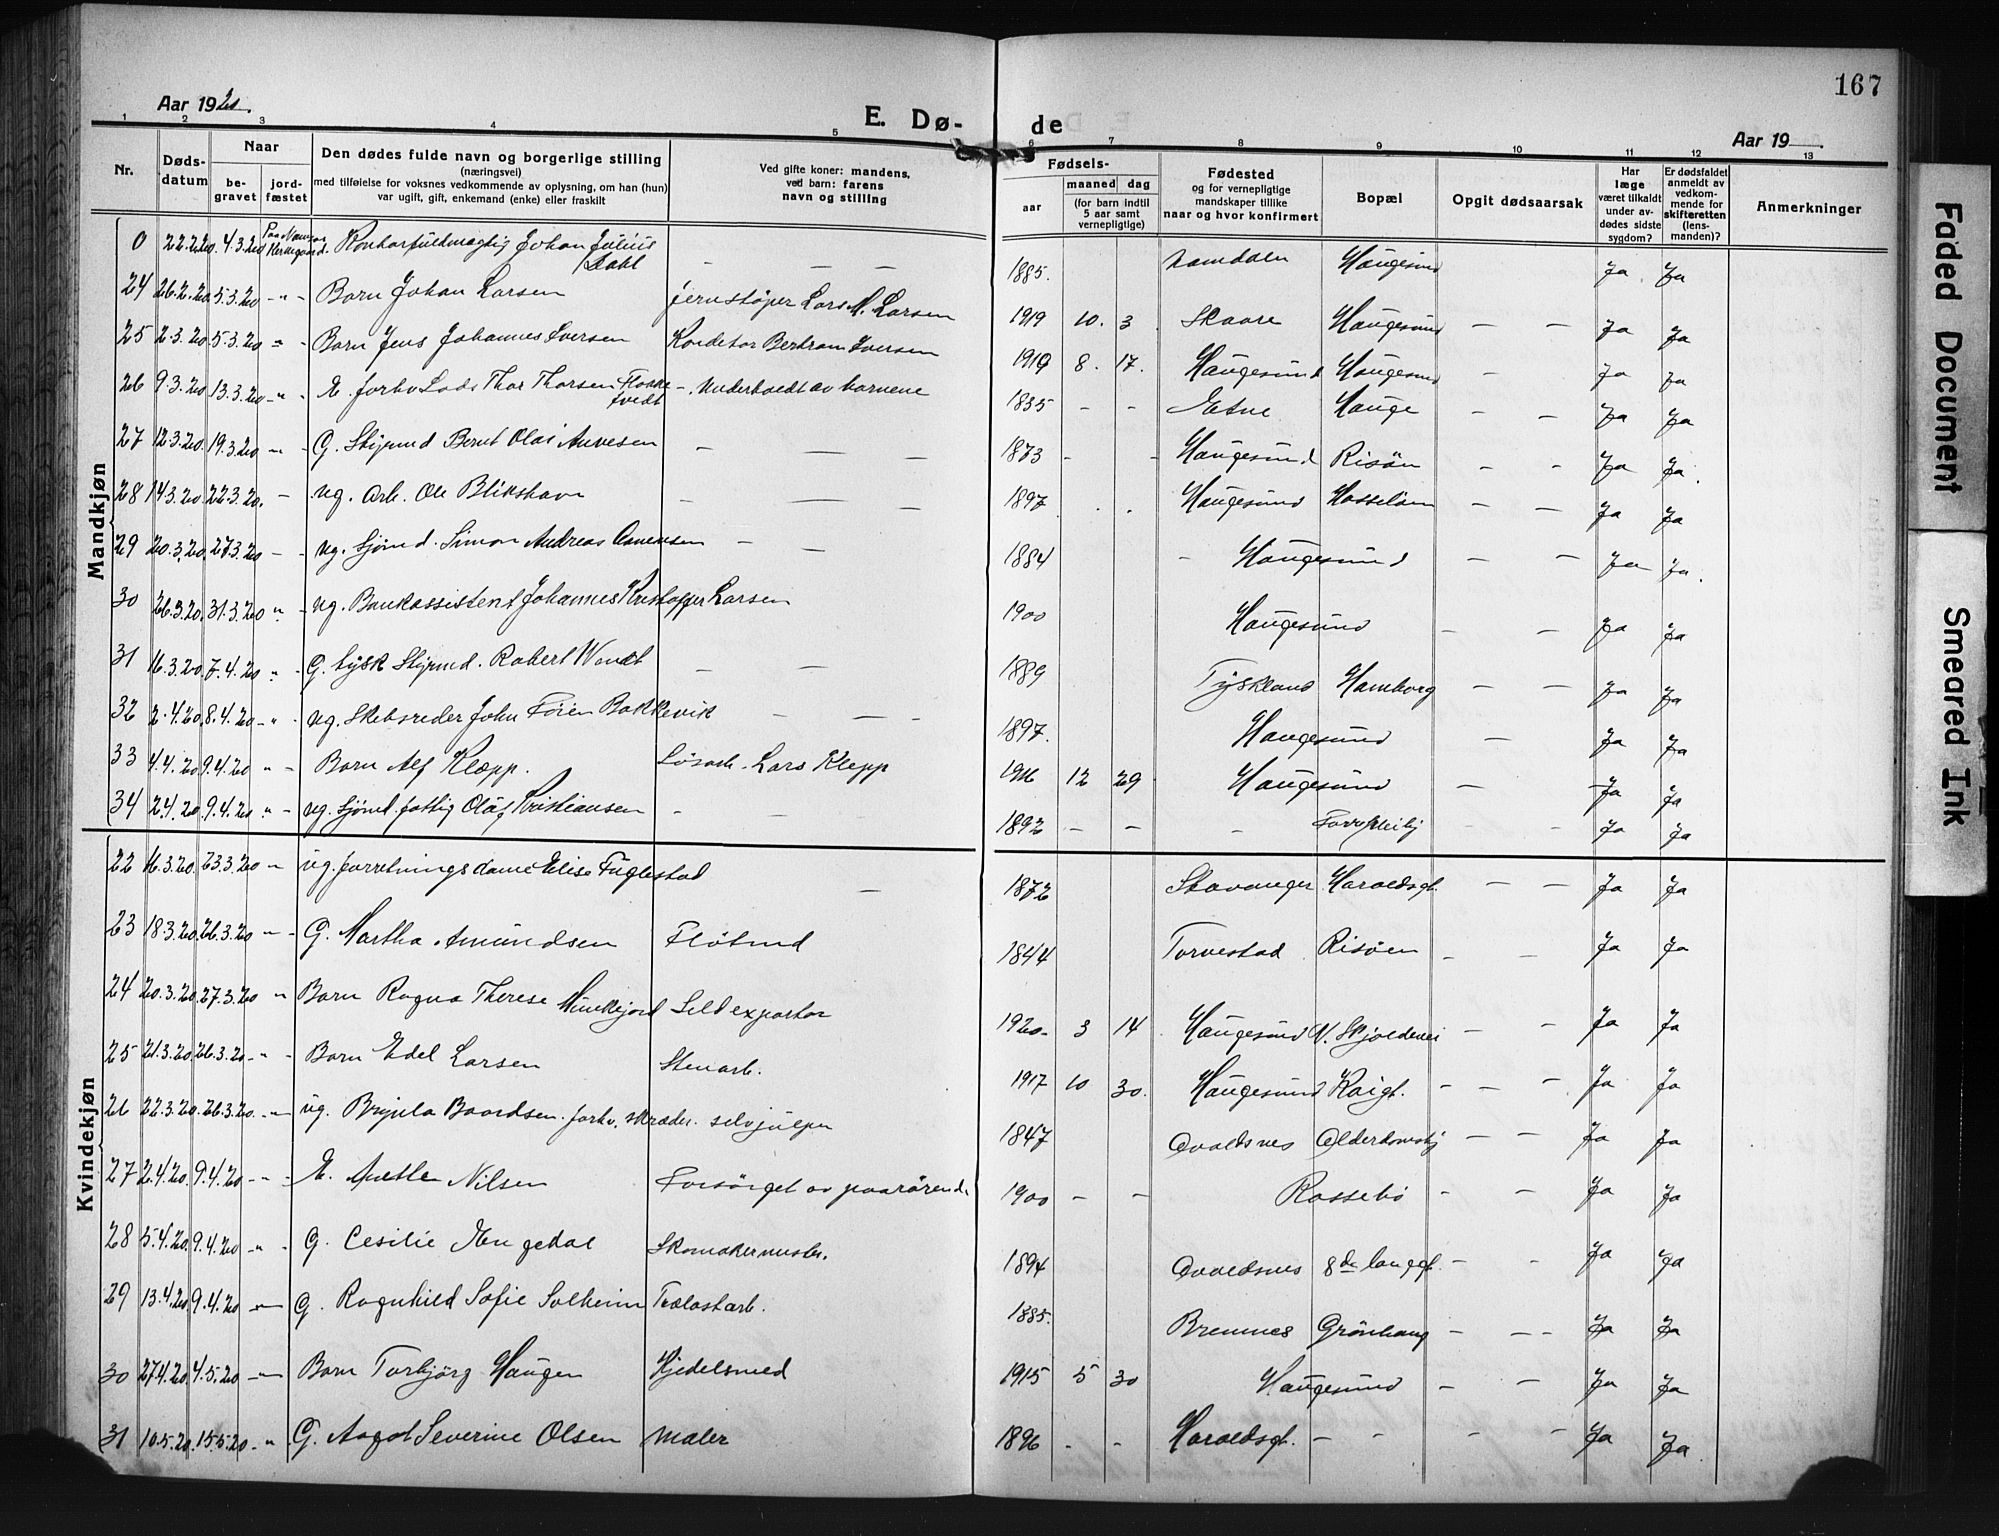 167
Aar 1920.
E. Dø-
de
Aar 19
1 2 3 4 5 6 7 8 9 10 11 12 13
Nr.
Døds-
datum
Naar
be-
gravet
jord-
fæstet
Den dødes fulde navn og borgerlige stilling
(næringsvei)
med tilføielse for voksnes vedkommende av oplysning, om han (hun)
var ugift, gift, enkemand (enke) eller fraskilt
Ved gifte koner: mandens,
ved barn: farens
navn og stilling
Fødsels-
aar
maaned
dag
(for barn indtil
5 aar samt
vernepligtige)
Fødested
og for vernepligtige
mandskaper tillike
naar og hvor konfirmert
Bopæl
Opgit dødsaarsak
Har
læge
været tilkaldt
under av-
dødes sidste
sygdom?
Er dødsfaldet
anmeldt av
vedkom-
mende for
skifteretten
(lens-
manden)?
Anmerkninger
Mandkjøn
0 22.2.20. 4.3.20 Kontorfuldmægtig Johan Julius Dahl — — — 1885. Namdalen Haugesund Ja Ja
24 26.2.20. 5.3.20 - " - Barn Johan Larsen jernstøper Lars M. Larsen 1919 10. 3 Skaare Haugesund — — Ja Ja
25 2.3.20. 5.3.20 " - Barn Jens Johannes Iversen Konditor Bertram Iversen 1919 8. 17. Haugesund Haugesund — Ja Ja
26 9.3.20 13.3.20 - " - E. forhv Lods Thor Thorsen Flokketvedt -. Underholdt av barnene 1835 - - Etne Hauge — — Ja Ja
27 12.3.20. 19.3.20 - " - G. Styrmd Bernt Olai Anvesen — — — 1873 - - Haugesund Risøen — — Ja Ja.
28 14.3.20 22.3.20. - ug. Arb. Ole Blikshavn — — — 1897 . . Haugesund Hasseløen — — Ja Ja
29 20.3.20. 27.3.20 - - ug. Sjømd. Simon Andreas — — 1884 - Haugesund — — Ja Ja.
30 26.3.20. 31.3.20 " - ug. Bankassistent Johannes Kristoffer Larsen 1900 Haugesund — — Ja Ja
31 16.3.20. 7.4.20 " - G. tysk Styrmd. Robert Wendt — — 1889 Tyskland Hamborg — — Ja Ja
32 2.4.20. 8.4.20 - " - ug. Skibsreder JohnFøien Bakkevik — — - 1897. Haugesund — Ja Ja
33 4.4.20 9.4.20 " - Barn Alf Klepp. Løsarb. Lars Klepp 1916 12 29 Haugesund — — Ja Ja
34 2.4.20. 9.4.20 " - ug. sjømd. fattig Olaf Kristiansen - — — 1892 - - - — — Ja Ja
Kvindekjøn
22 16.3.20. 23.3.20 " - ug. forretningsdame Elise Fuglestad — 1872 Stavanger Haraldsgt. — — Ja Ja
23 18.3.20. 26.3.20 " - G. Martha Amundsen Fløtmd 1844 Torvestad Risøen — — Ja Ja
24 20.3.20. 27.3.20 " Barn Ragna Therese Hinkejord Sildexportør 1920- 3 14 Haugesund N. Skjoldavei — — Ja Ja
25 21.3.20. 26.3.20 - " - Barn Edel Larsen Stenarb. 1917 10 30. Haugesund Kaigt. - - - Ja Ja
26 22.3.20. 26.3.20 - " - ug. Brynla Baardsen. forhv. skræder. selvhjulpen 1847 Avaldsnes — — Ja Ja
27 2.4.20. 9.4.20 - " - E. Anette Nilsen Forsørget av paarørende 1900 - - Rossebø - — Ja Ja
28 5.4.20. 9.4.20 " - G. Cesilie Engedal Skomakermester. 1894 Avaldsnes 8de langgt. - - Ja Ja
29 13.4.20. 9.4.20 " - G. Ragnhild Sofie Solheim Trælastarb. 1885. Bremnes Grønhaug - - - Ja Ja
30 27.4.20. 4.5.20 - " - Barn Torbjørg Haugen Kjedelsmed 1915 5 30 Haugesund - — Ja Ja
31 10.5.20. 15.5.20 - " G. Aagot Severine Olsen Maler 1896 - - Haraldsgt. - - — — Ja Ja
Faded Document
Smeared Ink